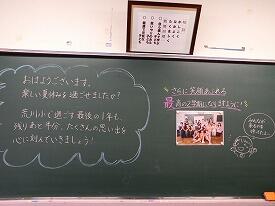 おはようございます。
楽しい夏休みを過ごせましたか？
荒川小で過ごす最後の1年も、
残りあと半分、たくさんの思い出を
心に刻んでいきましょう！
さらに笑顔あふれる
最高の2学期になりますように！
みんなが
来るのを
待ってたよ。